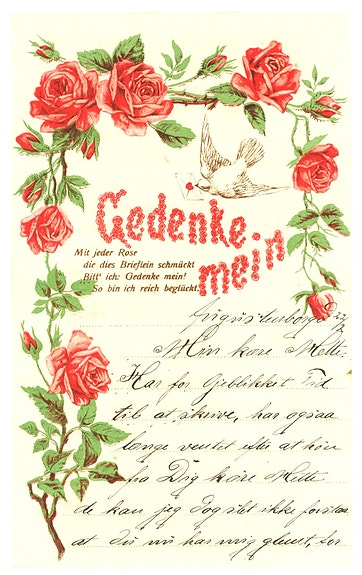 Gedenke mein
Mit jeder Rose
die dies Brieflein schmückt
Bitt' ich: Gedenke mein!
So bin ich reich beglückt.
Augustenborg 22/2
Min kære Mette.
Har for Øieblikket Tid
til at skrive, har ogsaa
længe ventet efter at høre
fra Dig kære Mette
de kan jeg dog slet ikke forstaa
at du nu har mig glemt, for